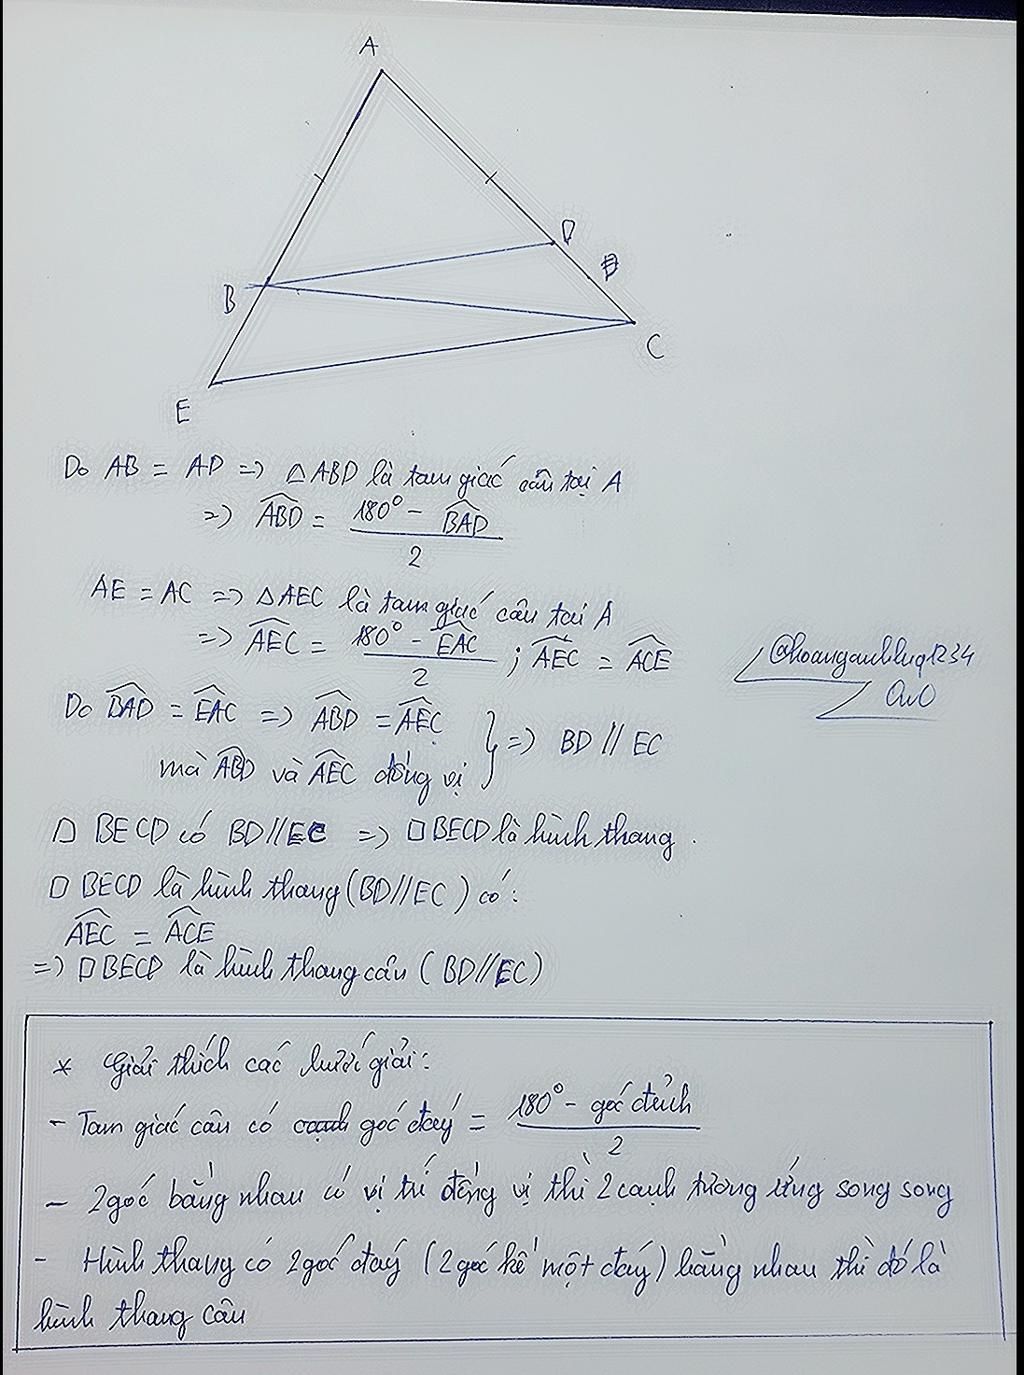 A
D
B
C
E
Do AB = AD => △ABD là tam giác cân tại A
=> ABD = 180° - BAD / 2
AE = AC => △AEC là tam giác cân tại A
=> AEC = 180° - EAC / 2 ; AEC = ACE
@hoanganhluq1234
OwO
Do BAD = EAC => ABD = AEC
mà ABD và AEC đồng vị } => BD // EC
□ BECD có BD//EC => □BECD là hình thang.
□ BECD là hình thang (BD//EC) có:
AEC = ACE
=> □BECD là hình thang cân (BD//EC)
* Giải thích các bước giải:
- Tam giác cân có góc đáy = 180° - góc đỉnh / 2
- 2 góc bằng nhau có vị trí đồng vị thì 2 cạnh tương ứng song song
- Hình thang có 2 góc đáy (2 góc kề một đáy) bằng nhau thì đó là
hình thang cân